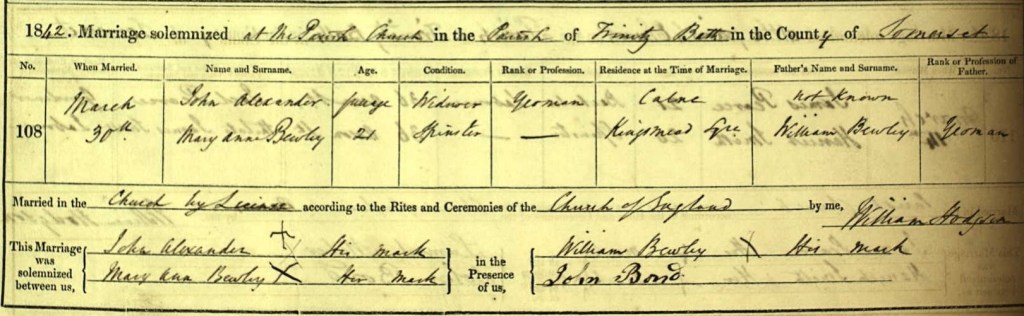 1842. Marriage solemnized at the Parish Church in the Parish of Trinity Bath in the County of Somerset
No. When Married. Name and Surname. Age. Condition. Rank or Profession. Residence at the Time of Marriage. Father's Name and Surname. Rank or Profession of Father.
March John Alexander full age Widower Yeoman Calne not known
108 30th Mary Anne Bewley 21 Spinster — Kingsmead Sqre William Bewley Yeoman
Married in the Church by Licence according to the Rites and Ceremonies of the Church of England by me, William Hodgson
This Marriage was solemnized between us, John Alexander + His mark in the Presence of us, William Bewley X His mark
Mary Ann Bewley X Her mark John Bond